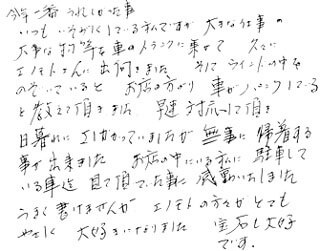 今年一番 うれしかった事
いつも いそがしくしている私ですが 大きな仕事の
大事な 車のトランクに乗せて 久々に
エノモトさんに出向きました そして ウィンドの中を
のぞいていると お店の方より 車がパンクしている
と教えて頂きました 早速 対応して頂き
日暮れに さしかかっていましたが 無事に帰着する
事が出来ました お店の中にいる私に 駐車して
いる車迄 目て頂てた事に 感動いたしました
うまく書けませんが エノモトの方々が とても
やさしく 大好きになりました 宝石も大好
です。